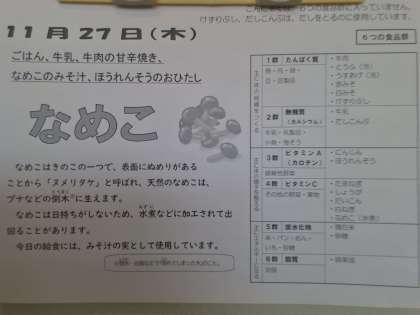 これらは、六つの食品群に入っていません。
けずりぶし、だしこんぶは、だしをとるのに使用しています。
11月27日（木）
６つの食品群
ごはん、牛乳、牛肉の甘辛焼き、
なめこのみそ汁、ほうれんそうのおひたし
なめこ
なめこはきのこの一つで、表面にぬめりがある
ことから「ヌメリタケ」と呼ばれ、天然のなめこは、
ブナなどの倒木に生えます。
なめこは日持ちがしないため、水煮などに加工されて出
回ることがあります。
今日の給食には、みそ汁の実として使用しています。
1群 たんぱく質
・牛肉
・とうふ（冷）
・うすあげ（冷）
・赤みそ
・白みそ
・けずりぶし
2群 無機質
（カルシウム）
・牛乳
・だしこんぶ
3群 ビタミンA
（カロテン）
緑黄色野菜
・にんじん
・ほうれんそう
4群 ビタミンC
その他の野菜・果物
・たまねぎ
・しょうが
・だいこん
・白ねぎ
・なめこ（水煮）
5群 炭水化物
米・パン・めん・
いも・砂糖
・精白米
・砂糖
6群 脂質
油脂
・綿実油